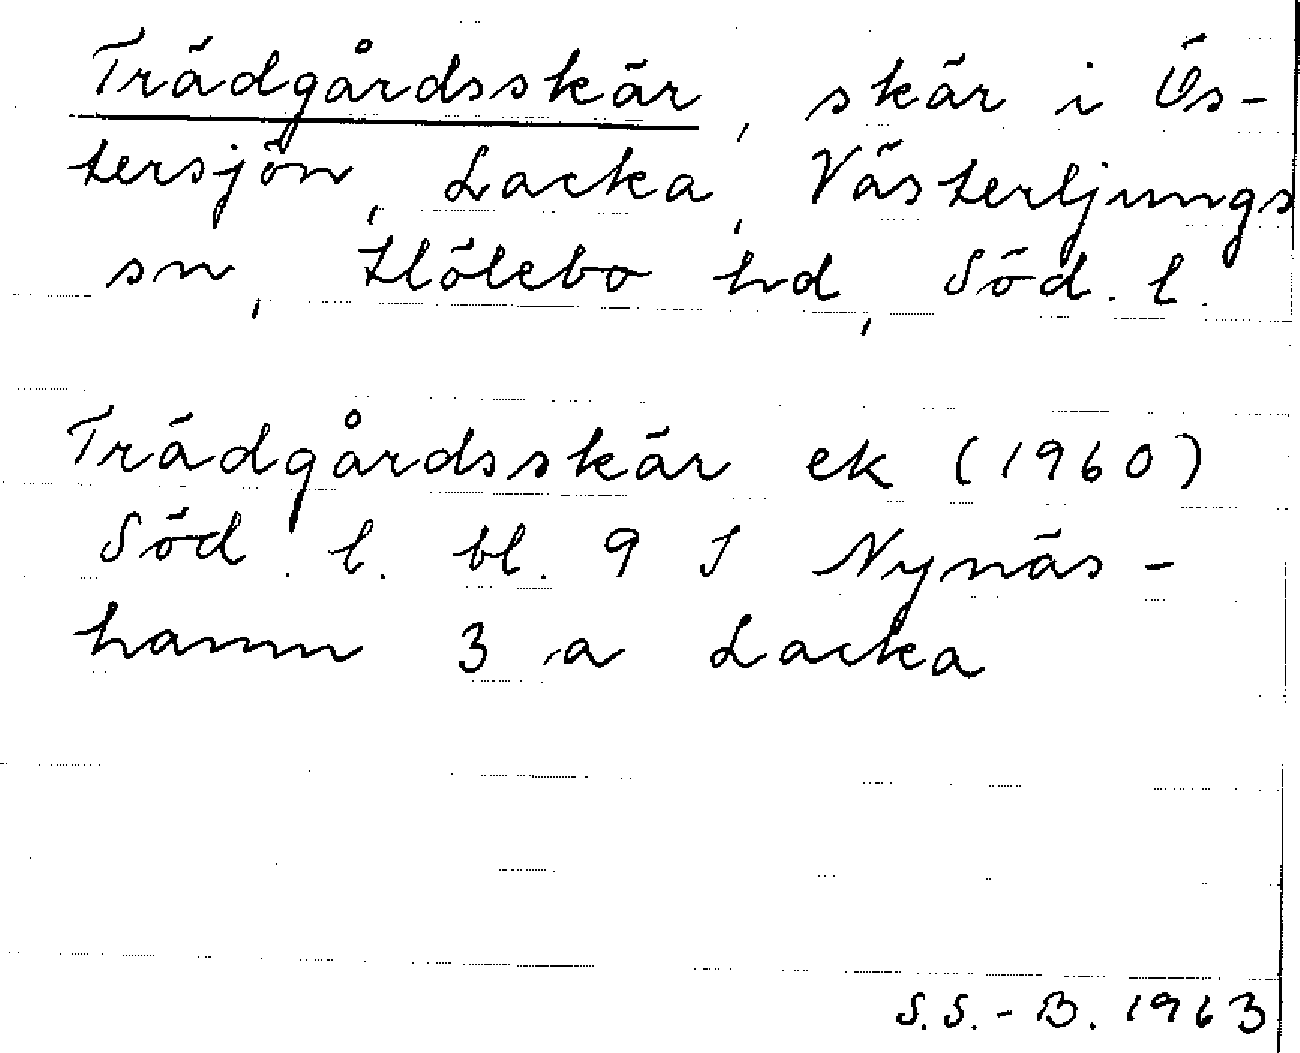 Trädgårdsskär, skär i Ös-
tersjön, Lacka, Västerljungs
sn, Hölebo hd, Söd. l.
Trädgårdsskär ek (1960)
Söd. l. bl. 9 I Nynäs-
hamn 3 a Lacka
S.S.-B. 1963